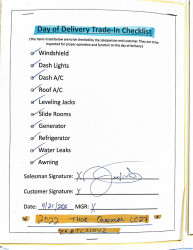 Day of Delivery Trade-In Checklist
(The items listed below are to be checked by the salesperson and customer. They are to be
inspected for proper operation and function on the day of delivery)
Windshield
Dash Lights
Dash A/C
Roof A/C
Leveling Jacks
Slide Rooms
Generator
Refrigerator
Water Leaks
Awning
Salesman Signature: X
Customer Signature: X
Date: MGR: X
2022 Thor